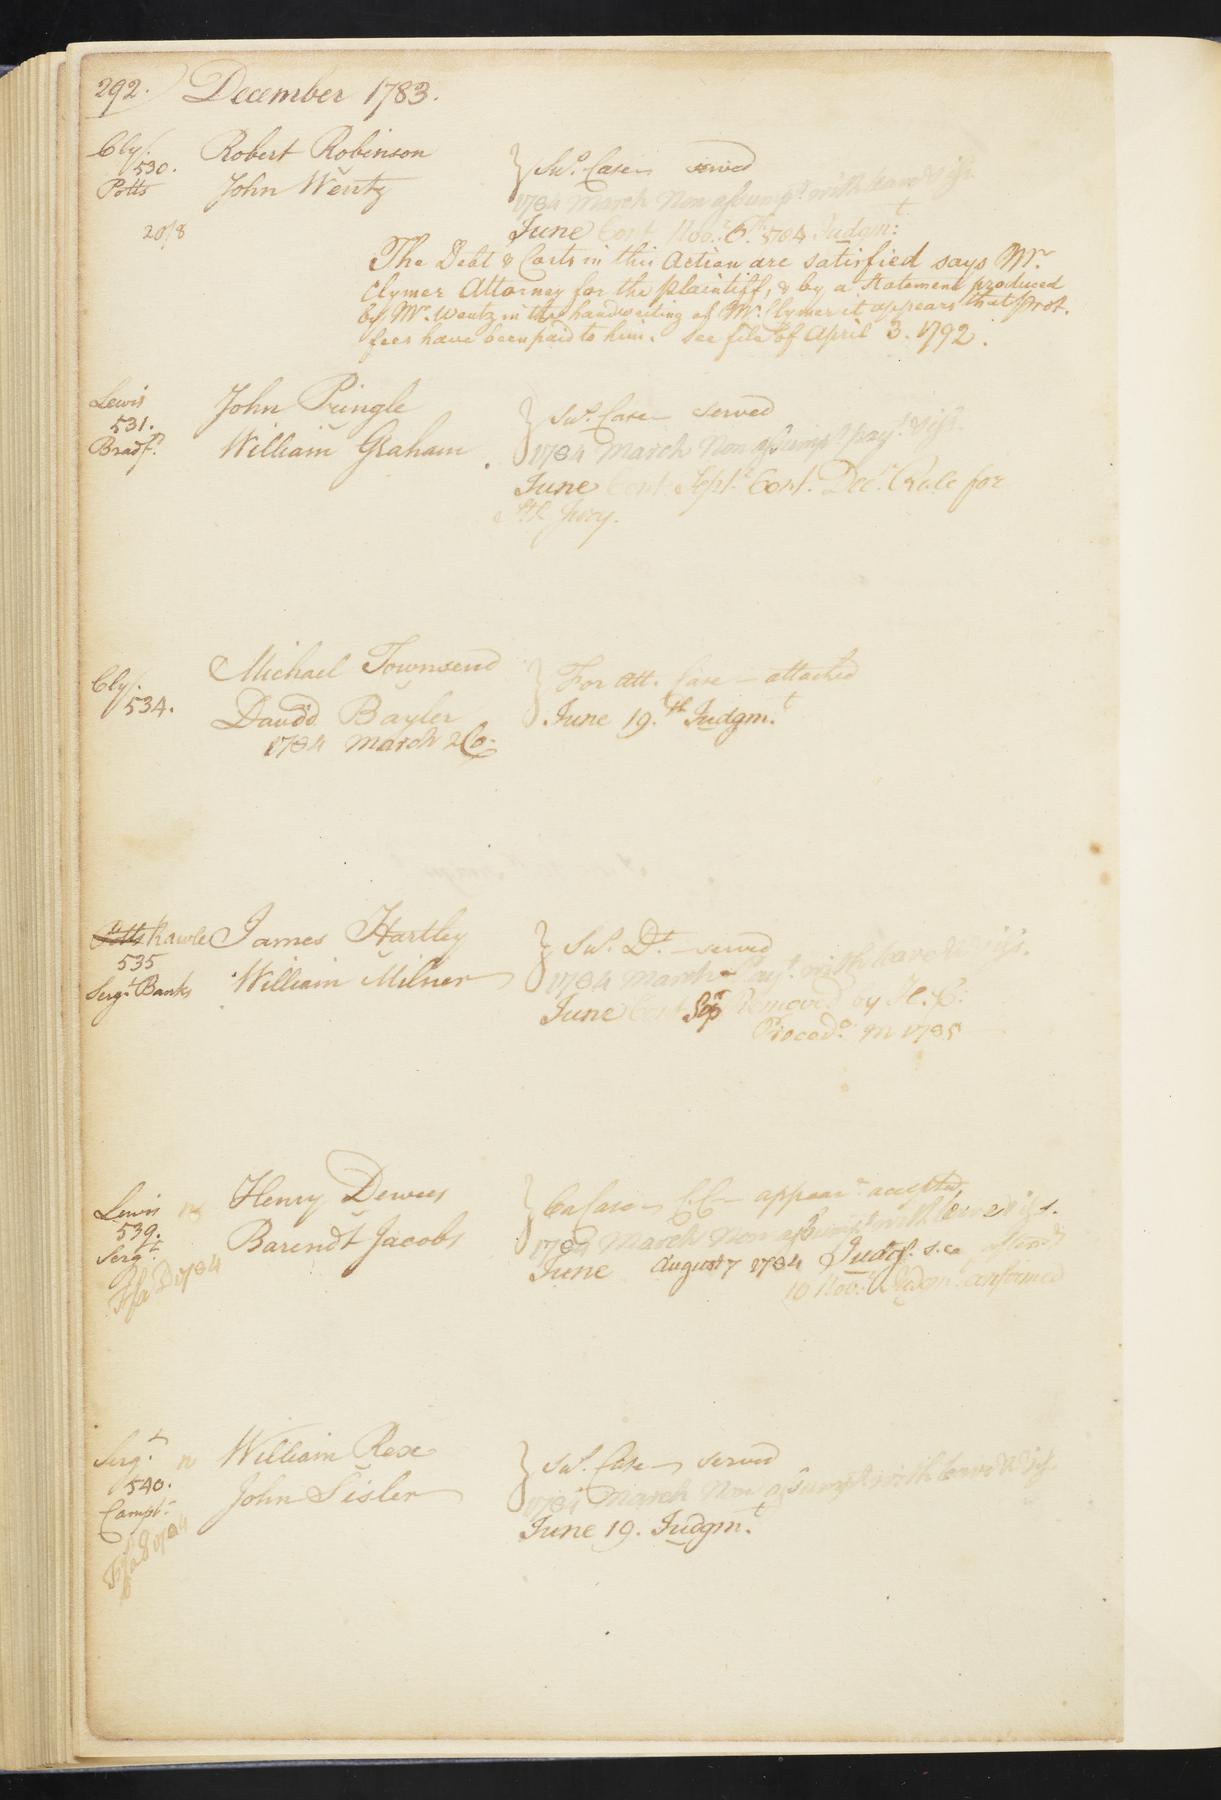 292. December 1783.
Cly/. Robert Robinson } Su.s Case served
530.
Potts v John Wentz 1784 March Non assump.t with leave & iss.
20/8 June Cont. Nov.r 6.th 1784 Judgm.t
The Debt & Costs in this Action are satisfied says Mr.
Clymer Attorney for the plaintiff, & by a statement produced
by Mr. Wentz in the handwriting of Mr. Clymer it appears that Prot.
fees have been paid to him. See file of April 3. 1792.
Lewis John Pringle } Su.s Case served
531.
Bradf.d v William Graham 1784 March Non assump.t pay.t & iss.
June Cont. Sept.r Cont. Dec.r Rule for
Jury.
Cly/. Michael Townsend } For Att. Case attached
534. v David Bayler June 19.th Judgm.t
1784 March 2 Co.
Potts Rawle James Hartley } Su.s D.t served
535
Serg.t Banks v William Milner 1784 March Pay.t with leave & iss.
June Cont. Sep.r Removed by H. C.
Proced.o in 1785
Lewis Henry Dewees } Ca Case C.C. appear.ce accepted
539.
Serg.t v Barendt Jacobs 1784 March Non assump.t with leave & iss.
Fi fa D 1784 June August 7 1784 Judg.t
10 Nov.r Judgm.t confirmed
Serg.t n William Rex } Su.s Case served
540.
Campb. John Sisler 1784 March Non assump.t with leave & iss.
Fi fa S 1784 June 19. Judgm.t